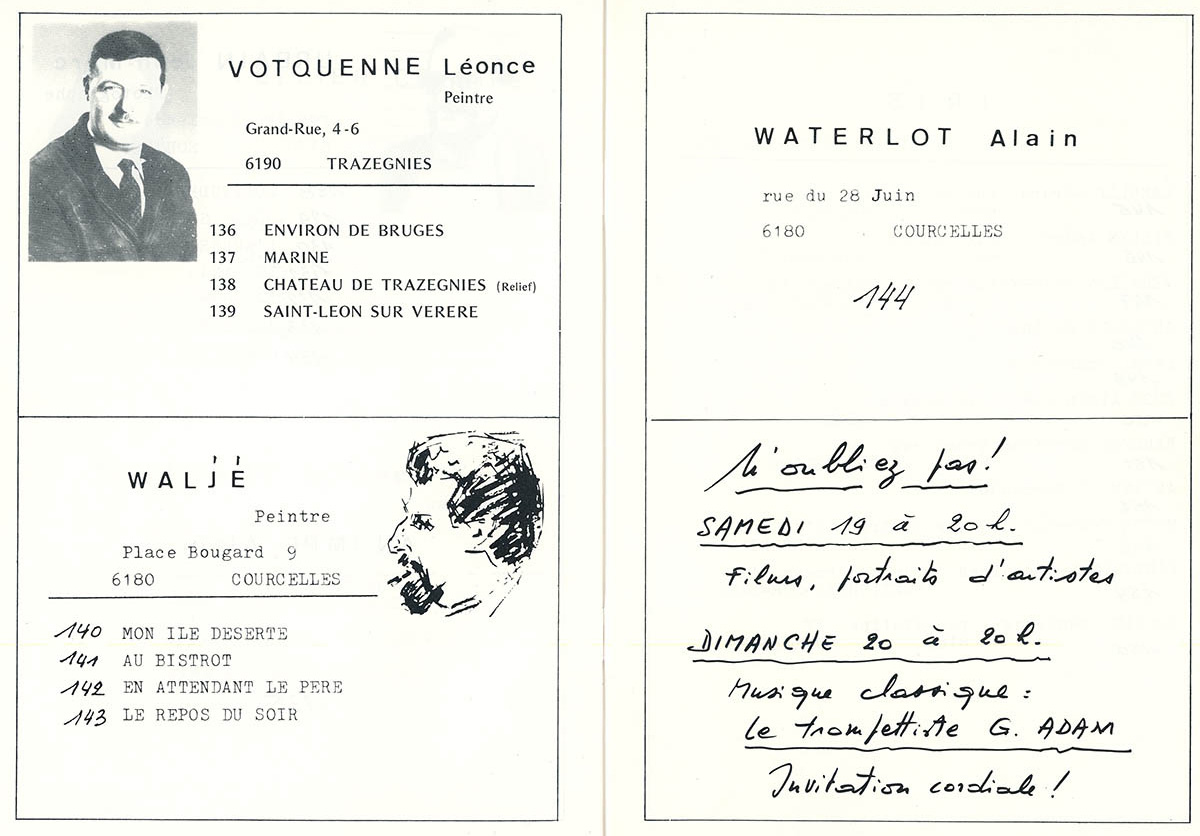 VOTQUENNE Léonce
Peintre
Grand-Rue, 4-6
6190 TRAZEGNIES
136 ENVIRON DE BRUGES
137 MARINE
138 CHATEAU DE TRAZEGNIES (Relief)
139 SAINT-LEON SUR VERERE
WALJÉ
Peintre
Place Bougard 9
6180 COURCELLES
140 MON ILE DESERTE
141 AU BISTROT
142 EN ATTENDANT LE PERE
143 LE REPOS DU SOIR
WATERLOT Alain
rue du 28 Juin
6180 COURCELLES
144
N'oubliez pas!
SAMEDI 19 à 20h.
Films, portraits d'artistes
DIMANCHE 20 à 20h.
Musique classique :
Le trompettiste G. ADAM
Invitation cordiale !